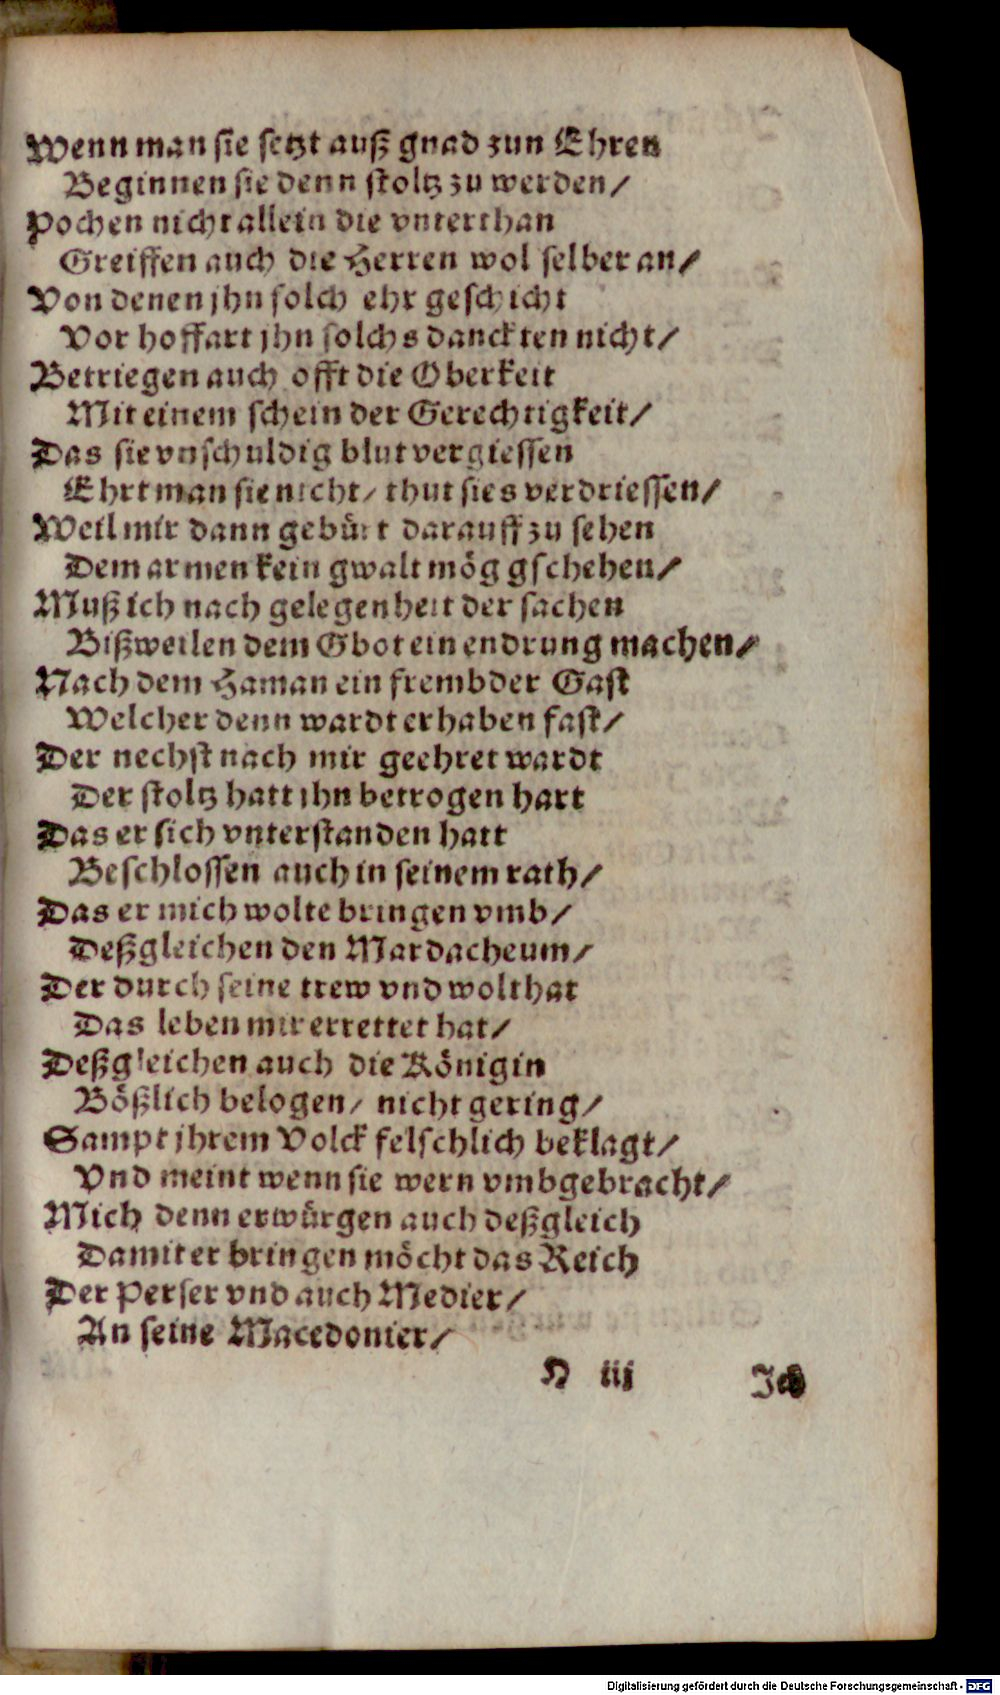 Wenn man sie setzt auß gnad zun Ehren
Beginnen sie denn stoltz zu werden/
Pochen nicht allein die vnterthan
Greiffen auch die Herren wol selber an/
Von denen jhn solch ehr geschicht
Vor hoffart jhn solchs danckten nicht/
Betriegen auch offt die Oberkeit
Mit einem schein der Gerechtigkeit/
Das sie vnschuldig blut vergiessen
Ehrt man sie nicht/ thut sies verdriessen/
Weil mir dann gebürt darauff zu sehen
Dem armen kein gwalt mög gschehen/
Muß ich nach gelegenheit der sachen
Bißweilen dem Gbot ein endrung machen/
Nach dem Haman ein frembder Gast
Welcher denn wardt erhaben fast/
Der nechst nach mir geehret wardt
Der stoltz hatt jhn betrogen hart
Das er sich vnterstanden hatt
Beschlossen auch in seinem rath/
Das er mich wolte bringen vmb/
Deßgleichen den Mardacheum/
Der durch seine trew vnd wolthat
Das leben mir errettet hat/
Deßgleichen auch die Königin
Bößlich belogen/ nicht gering/
Sampt jhrem Volck felschlich beklagt/
Vnd meint wenn sie wern vmbgebracht/
Mich denn erwürgen auch deßgleich
Damit er bringen möcht das Reich
Der Perser vnd auch Medier/
An seine Macedonier/
H iij Ich
Digitalisierung gefördert durch die Deutsche Forschungsgemeinschaft - DFG